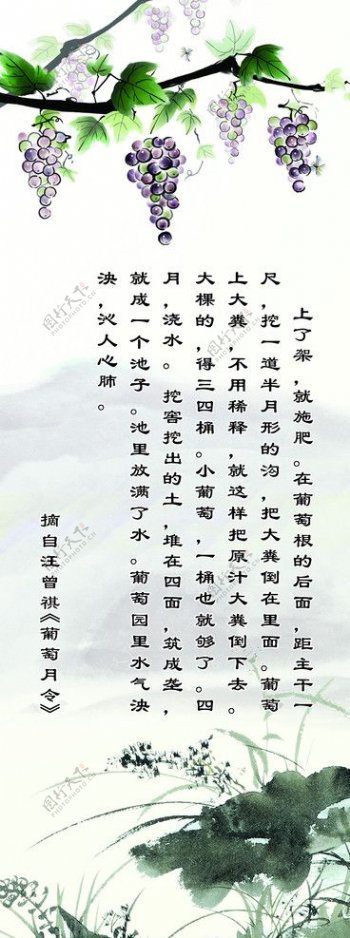 上了架，就施肥。在葡萄根的后面，距主干一
尺，挖一道半月形的沟，把大粪倒在里面。葡萄
上大粪，不用稀释，就这样把原汁大粪倒下去。
大棵的，得三四桶。小葡萄，一桶也就够了。四
月，浇水。 挖窖挖出的土，堆在四面，筑成垄，
就成一个池子。池里放满了水。葡萄园里水气泱
泱，沁人心肺。
摘自汪曾祺《葡萄月令》